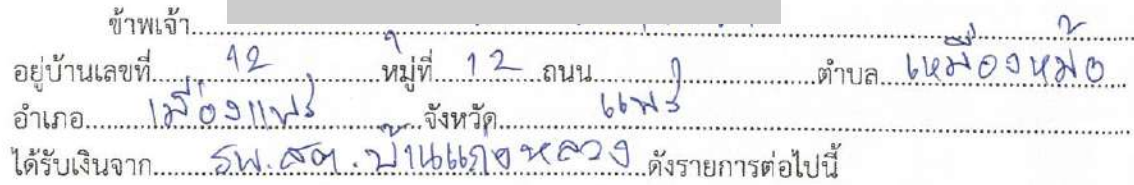 ข้าพเจ้า
อยู่บ้านเลขที่ 12 หมู่ที่ 12 ถนน ตำบล เหมืองหม้อ
อำเภอ เมืองแพร่ จังหวัด แพร่
ได้รับเงินจาก รพ.สต. บ้าน หลวง ดังรายการต่อไปนี้